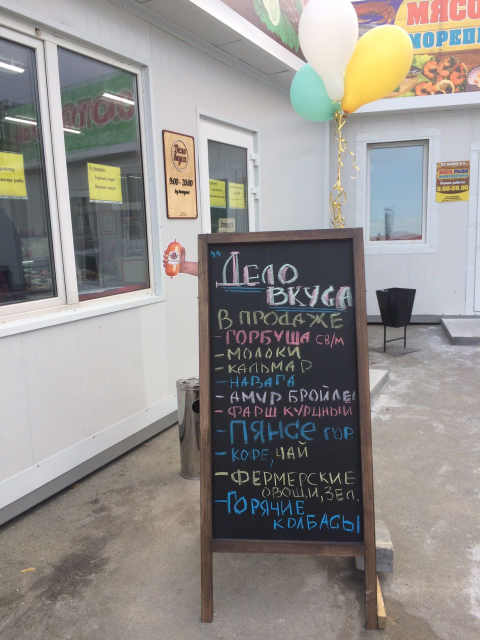 МЯСО
МОРЕПР
Дело
вкуса
9:00 - 20:00
МЯСО РЫБА
9.00-20.00
"Дело
вкуса
В ПРОДАЖЕ
- ГОРБУША СВ/М
- МОЛОКИ
- КАЛЬМАР
- НАВАГА
- АМУР БРОЙЛЕ
- ФАРШ КУРИНЫЙ
- ПЯНСЕ ГОР
- КОФЕ, ЧАЙ
- ФЕРМЕРСКИЕ
ОВОЩИ, ЗЕЛ.
- ГОРЯЧИЕ
КОЛБАСЫ